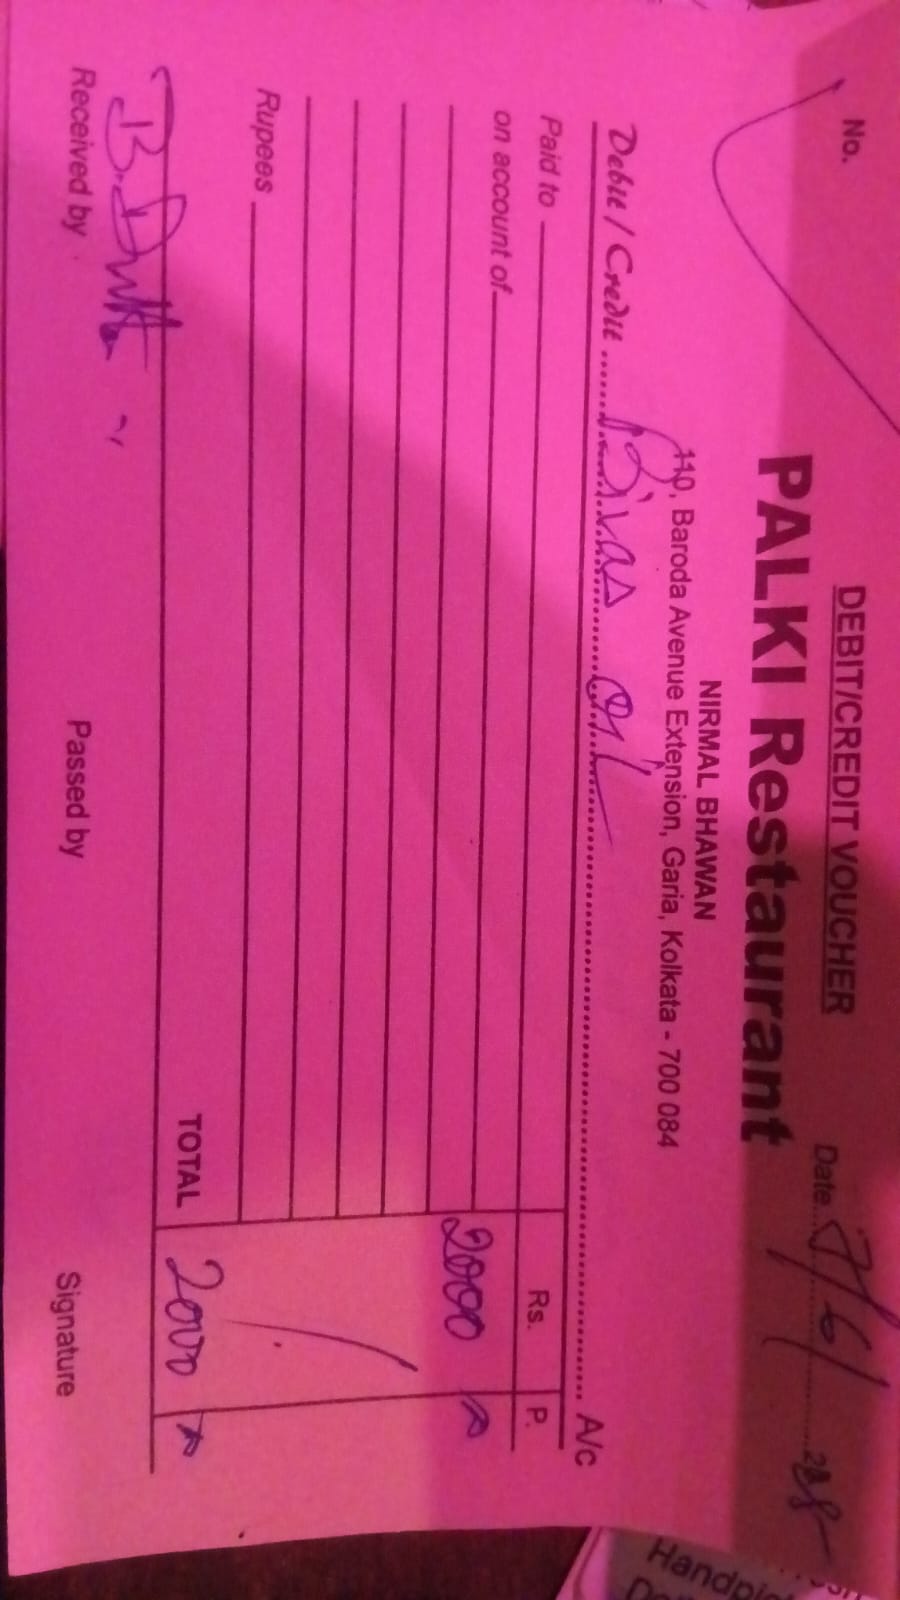 DEBIT/CREDIT VOUCHER
No.
Date 7/6/
PALKI Restaurant
NIRMAL BHAWAN
110, Baroda Avenue Extension, Garia, Kolkata - 700 084
Debit / Credit Bivas A/c
Paid to Rs. P.
on account of
2000
Rupees
TOTAL 2000
B. Dutta
Received by Passed by Signature